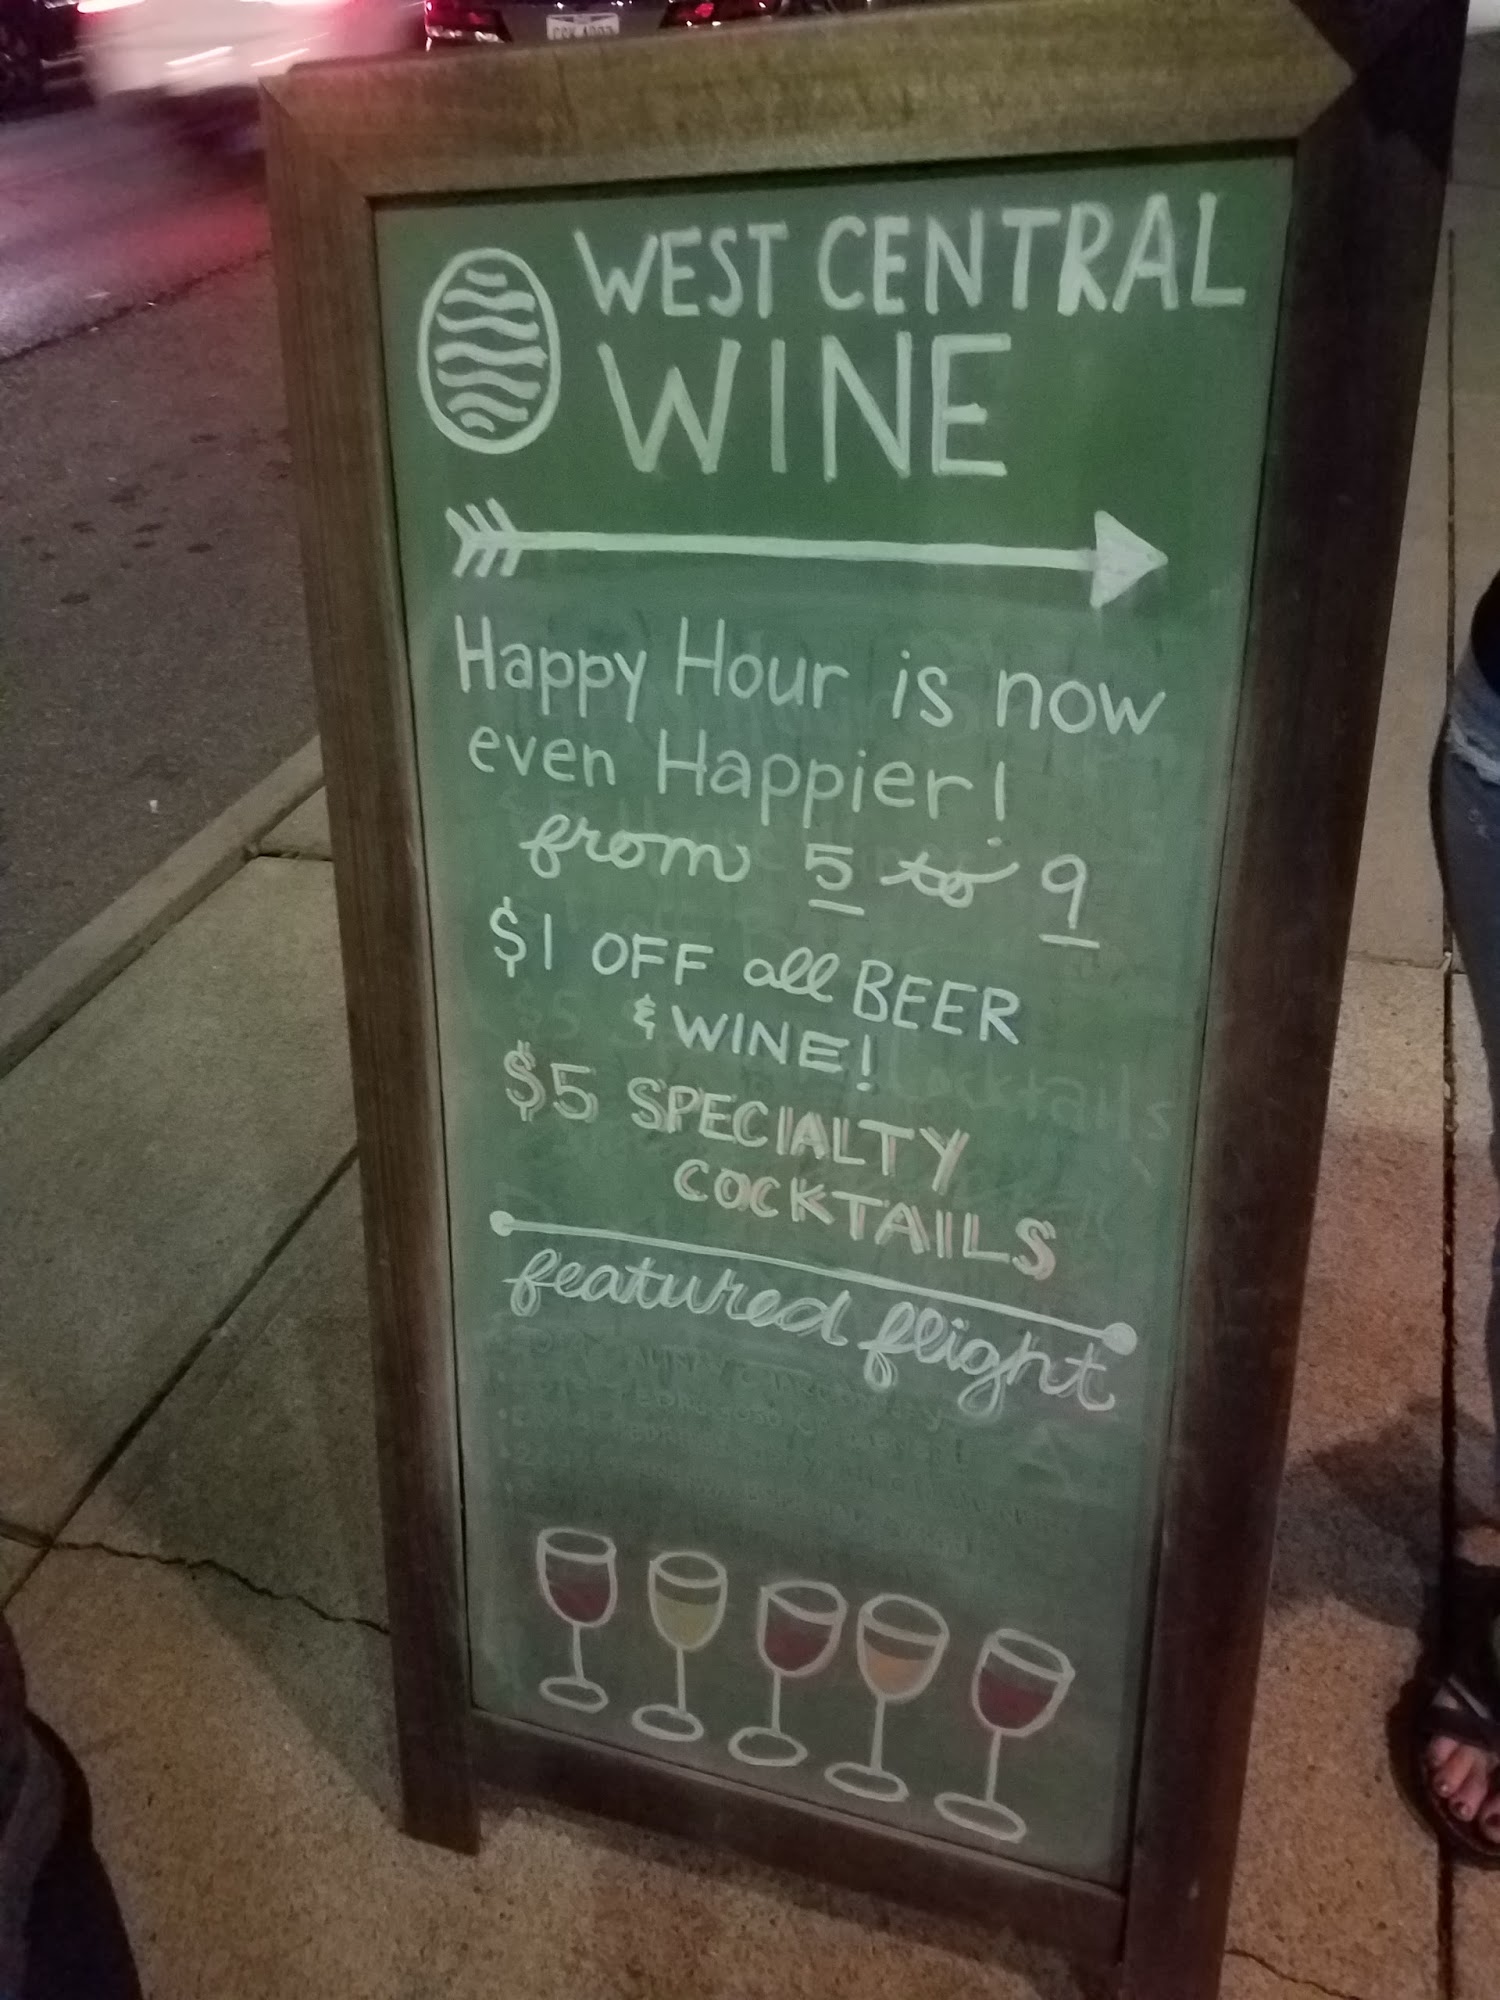 WEST CENTRAL
WINE
Happy Hour is now
even Happier!
from 5 to 9
$1 OFF all BEER
& WINE!
$5 SPECIALTY
COCKTAILS
featured flight